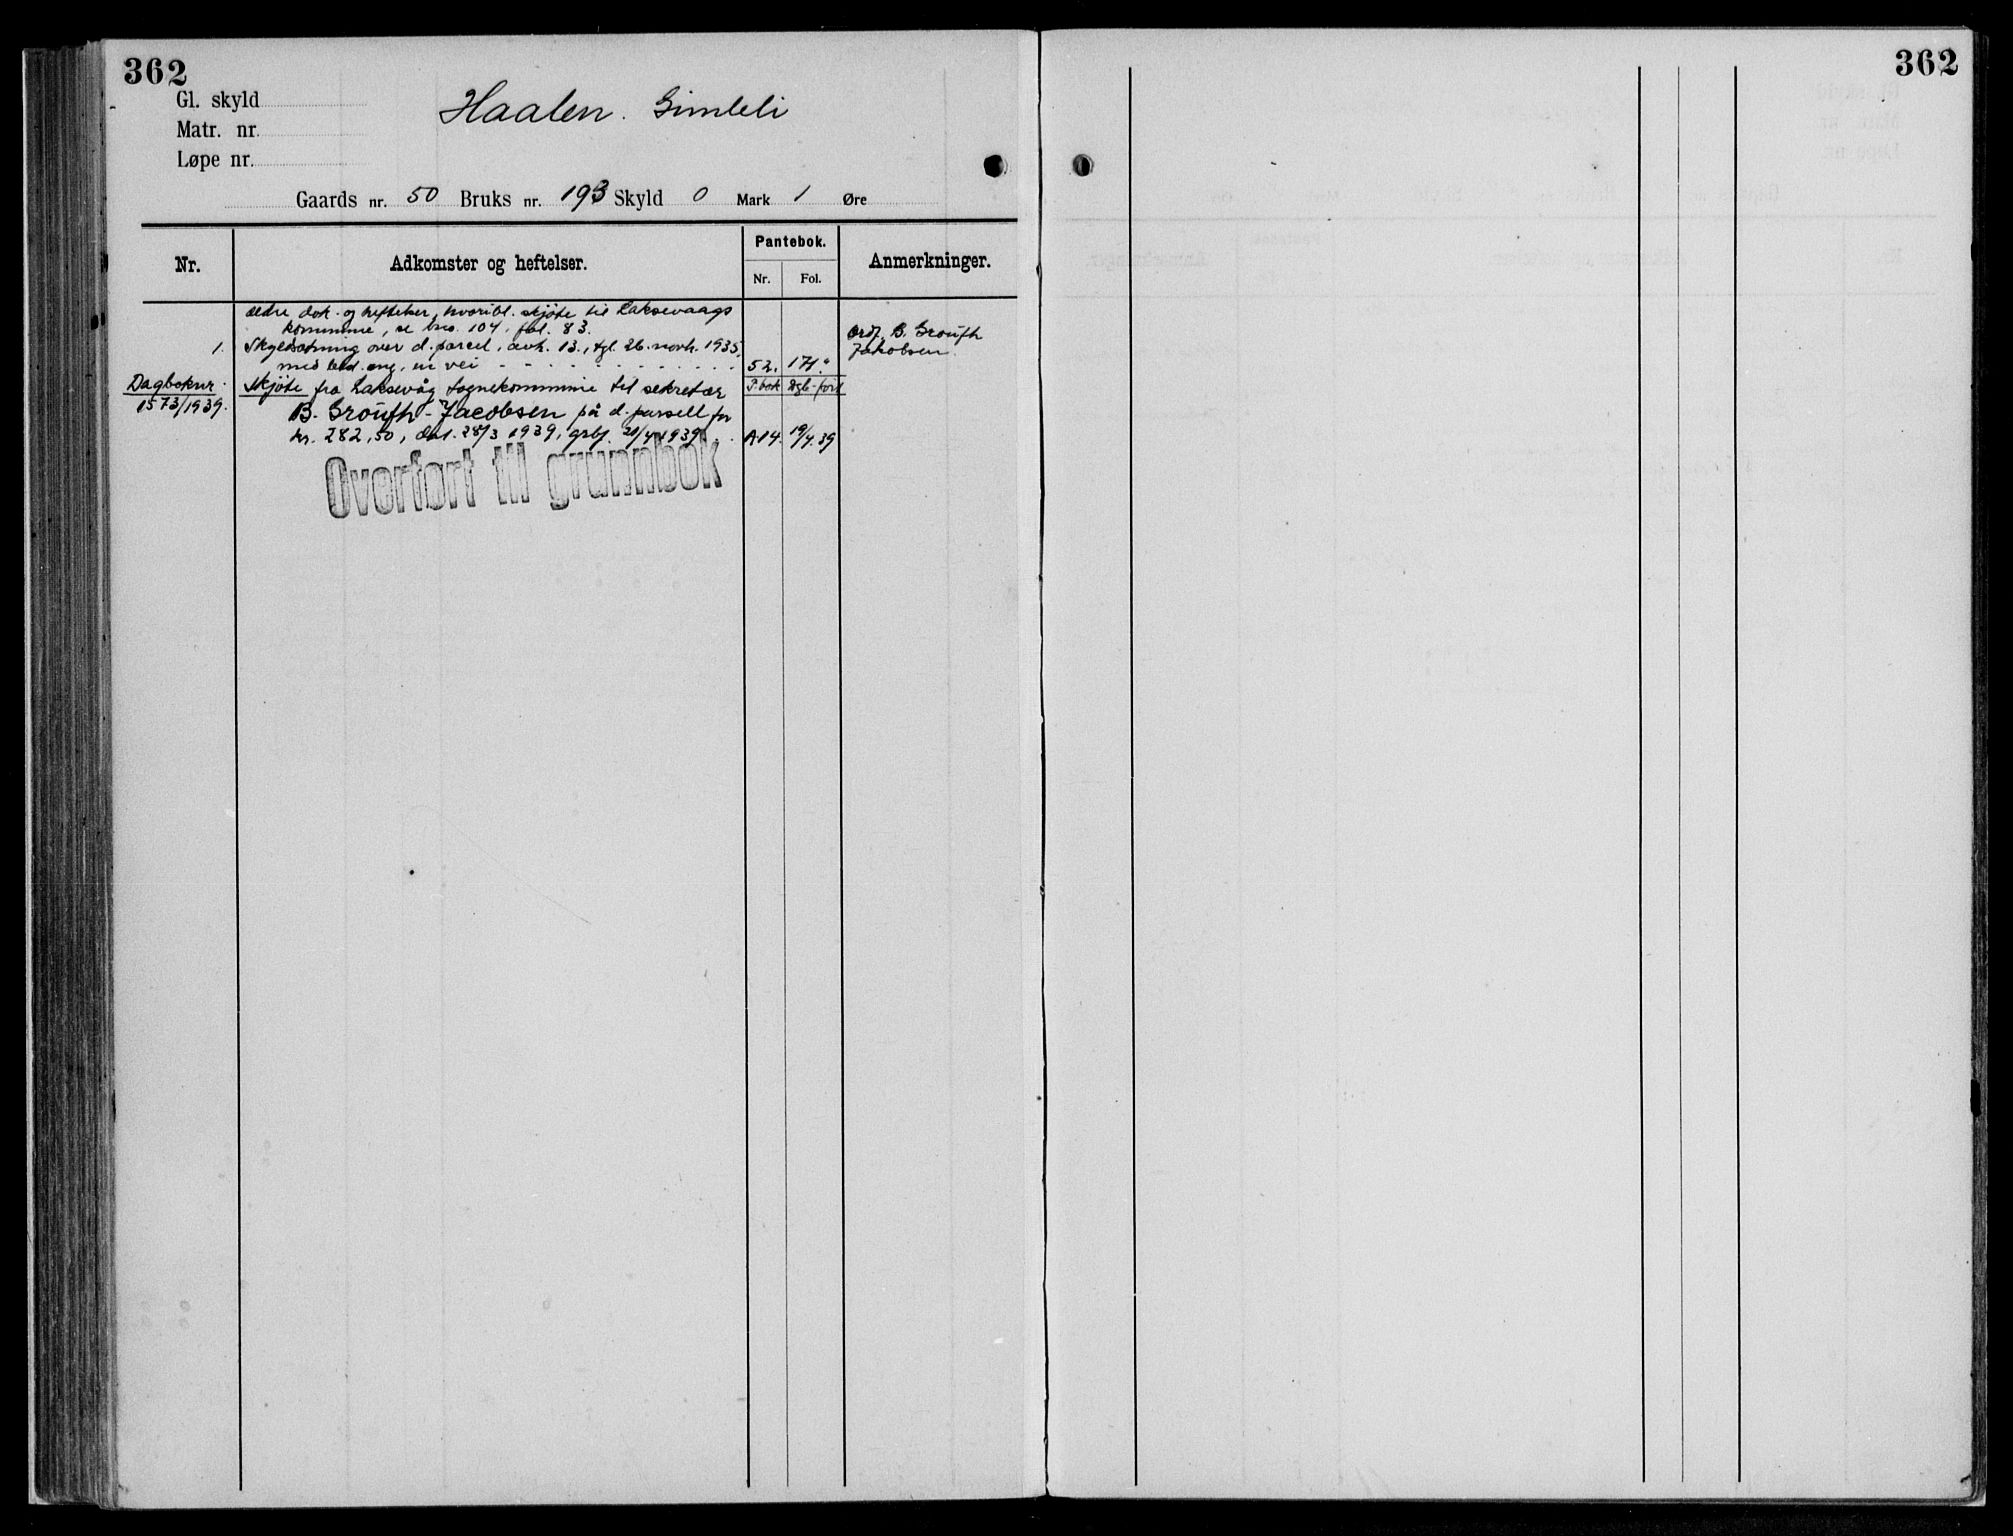 362
362
Gl. skyld
Matr. nr.
Løpe nr.
Haalen. Gimleli
Gaards nr. 50 Bruks nr. 193 Skyld 0 Mark 1 Øre
Nr.
Adkomster og heftelser.
Pantebok.
Nr. Fol.
Anmerkninger.
ældre dok. og heftelser, hvoribl. skjöte til Laksevaags
kommune, se bno. 104, fol. 83.
1. Skyldsetning over d. parcel, avh. 13., tgl. 26. novb. 1935,
med best. ang. en vei 52. 171.
Ordf. B. Groufh
Jakobsen.
Dagboknr. Skjöte fra Laksevåg sognekommune til sekretær P.bok Dgb-fört
1573/1939. B. Groufh-Jacobsen på d. parsell for
kr. 282,50, dat. 28/3 1939, grbf. 21/4 1939. A.14. 19/4.39
Overført til grunnbok